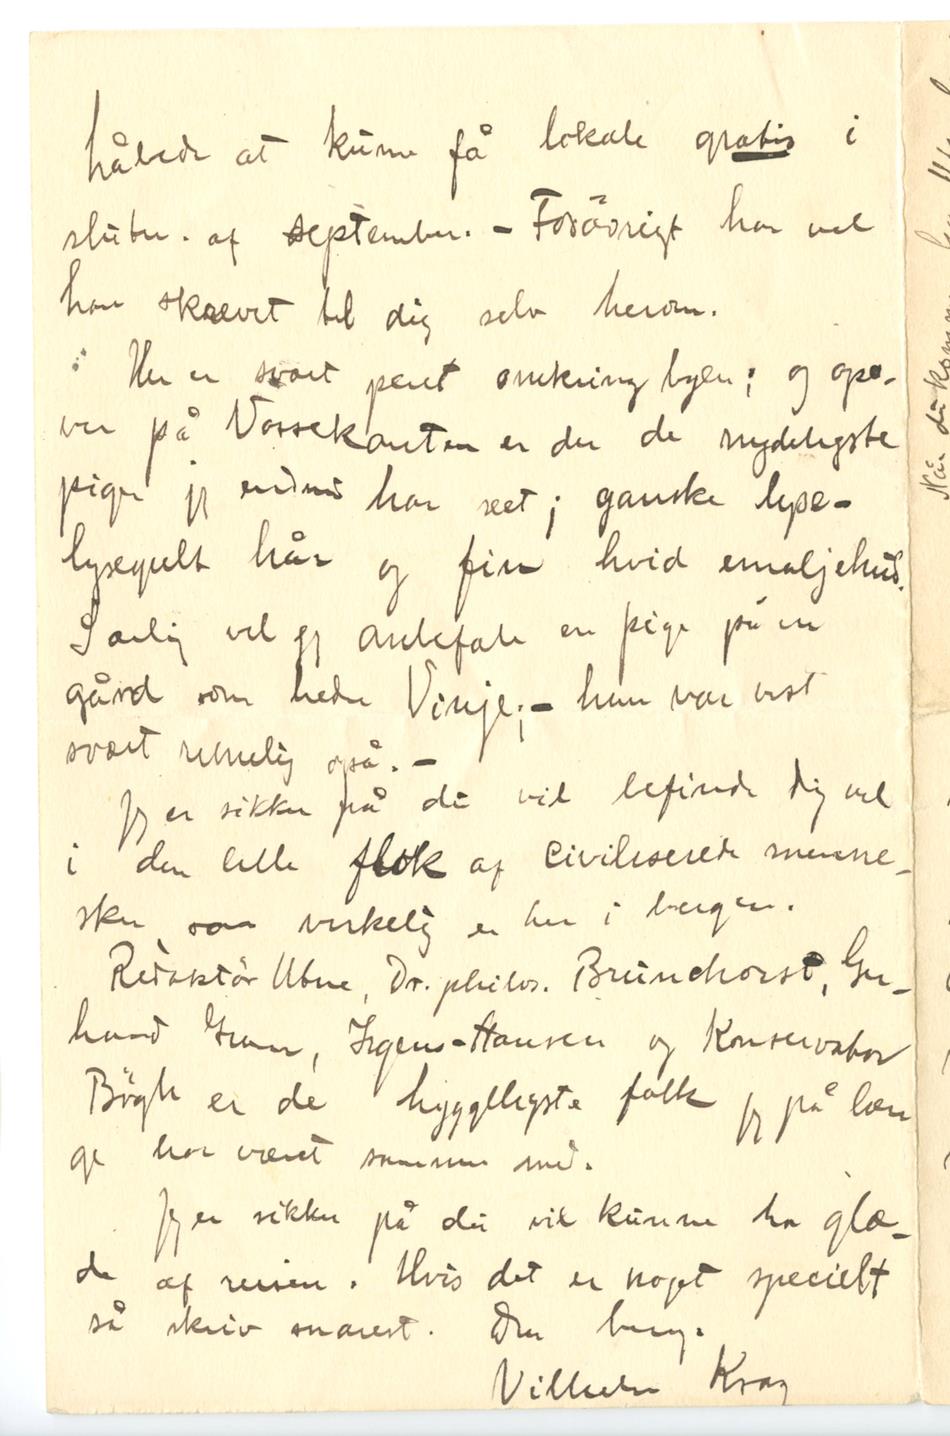 håbede at kunne få lokale gratis i
slutn. af september. – Forövrigt har vel
han skrevet til dig selv herom.
Her er svært pent omkring byen; og opo-
ver på Vossekanten er der de nydeligste
piger jeg endnu har seet; ganske lyse-
lysegult hår og fin hvid emaljehud.
Særlig vil jeg anbefale en pige på en
gård som heder Vinje; – hun var vist
svært rimelig også. –
Jeg er sikker på du vil befinde dig vel
i den lille flok af civiliserede menne-
sker som virkelig er her i bergen.
Redaktör Ubue, Dr. philos. Brunchorst, Ger-
hard Gran, Irgens-Hansen og Konservator
Bögh er de hyggeligste folk jeg på læn
ge har været sammen med.
Jeg er sikker på du vil kunne ha glæ-
de af reisen. Hvis det er noget specielt
så skriv snarest. Din
Vilhelm Krag
Når du kommer